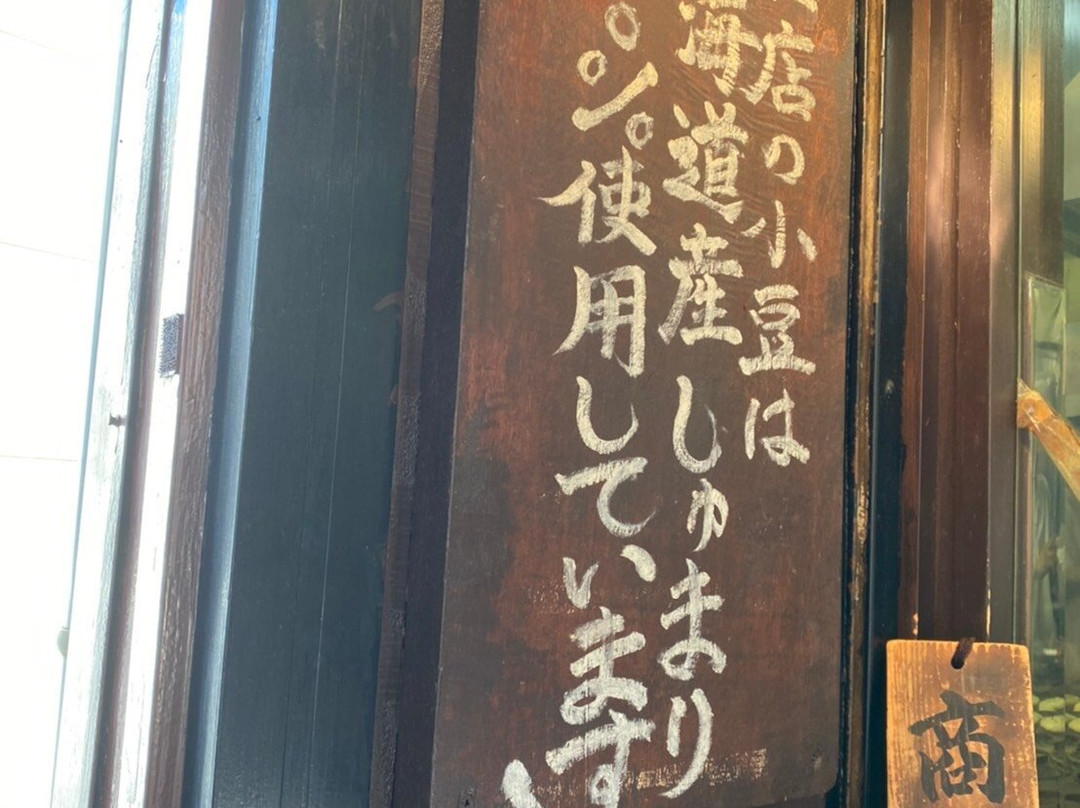 店の小豆は
海道産しゅまり
ン。使用しています
商